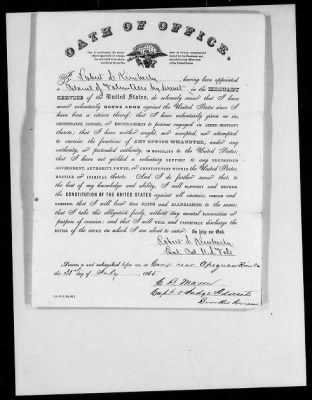 OATH OF OFFICE.
I, Robert L. Kimberly, having been appointed
Colonel of Volunteers by brevet in the MILITARY
SERVICE of the United States, do solemnly swear that I have
never voluntarily BORNE ARMS against the United States since I
have been a citizen thereof; that I have voluntarily given no
COUNTENANCE, COUNSEL, or ENCOURAGEMENT to persons engaged in ARMED HOSTILITY
thereto; that I have neither sought, nor accepted, nor attempted
to exercise the functions of ANY OFFICE WHATEVER, under any
authority, or pretended authority, IN HOSTILITY to the United States;
that I have not yielded a voluntary support to any PRETENDED
GOVERNMENT, AUTHORITY, POWER, or CONSTITUTION WITHIN THE UNITED STATES,
HOSTILE or INIMICAL thereto. And I do further swear that, to
the best of my knowledge and ability, I will SUPPORT and DEFEND
the CONSTITUTION OF THE UNITED STATES against all enemies, FOREIGN and
DOMESTIC; that I will bear TRUE FAITH and ALLEGIANCE to the SAME;
that I take this obligation freely, without any mental reservation or
purpose of evasion; and that I will WELL and FAITHFULLY discharge the
DUTIES of the OFFICE on which I am about to enter: So help me God.
Robert L. Kimberly
Bvt. Col. U.S. Vols
Sworn to and subscribed before me, at Camp near
the 31st day of July 1865.
C B Mason
Capt & Judge Advocate